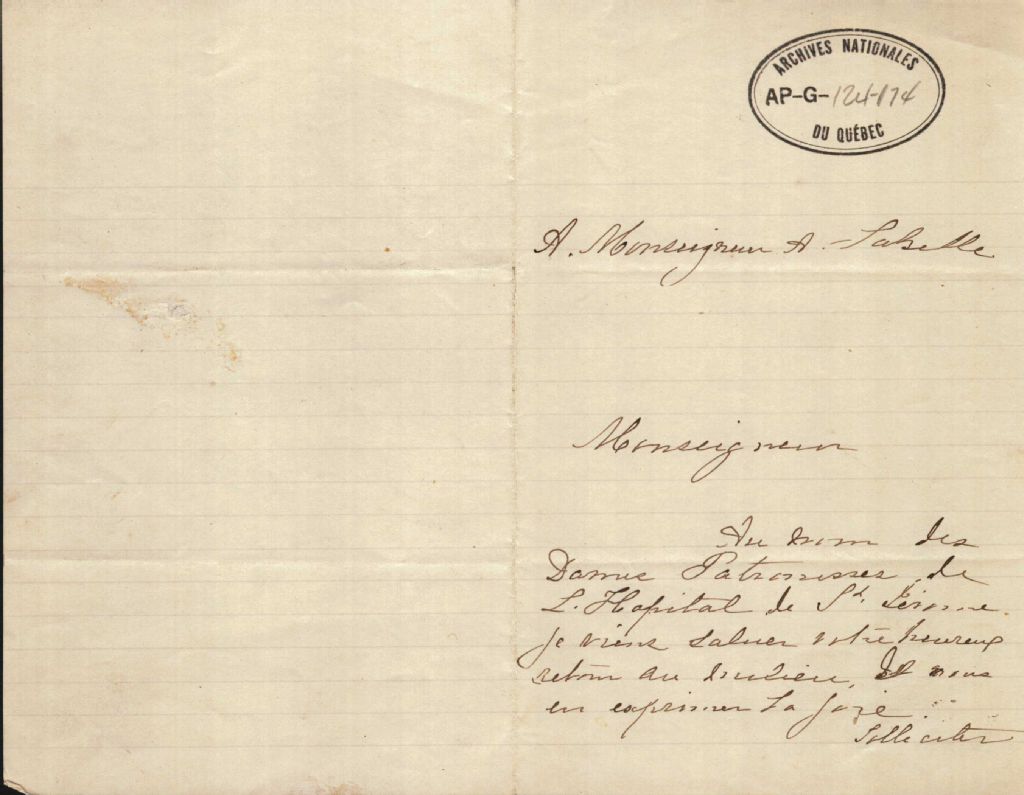 ARCHIVES NATIONALES
AP-G-124-174
DU QUÉBEC
A. Monseigneur A. Labelle
Monseigneur
Au nom des
Dames Patronesses de
L. Hopital de St. Jérome
je viens saluer votre heureux
retour au milieu, Et vous
en exprimer La joie.
Solliciter